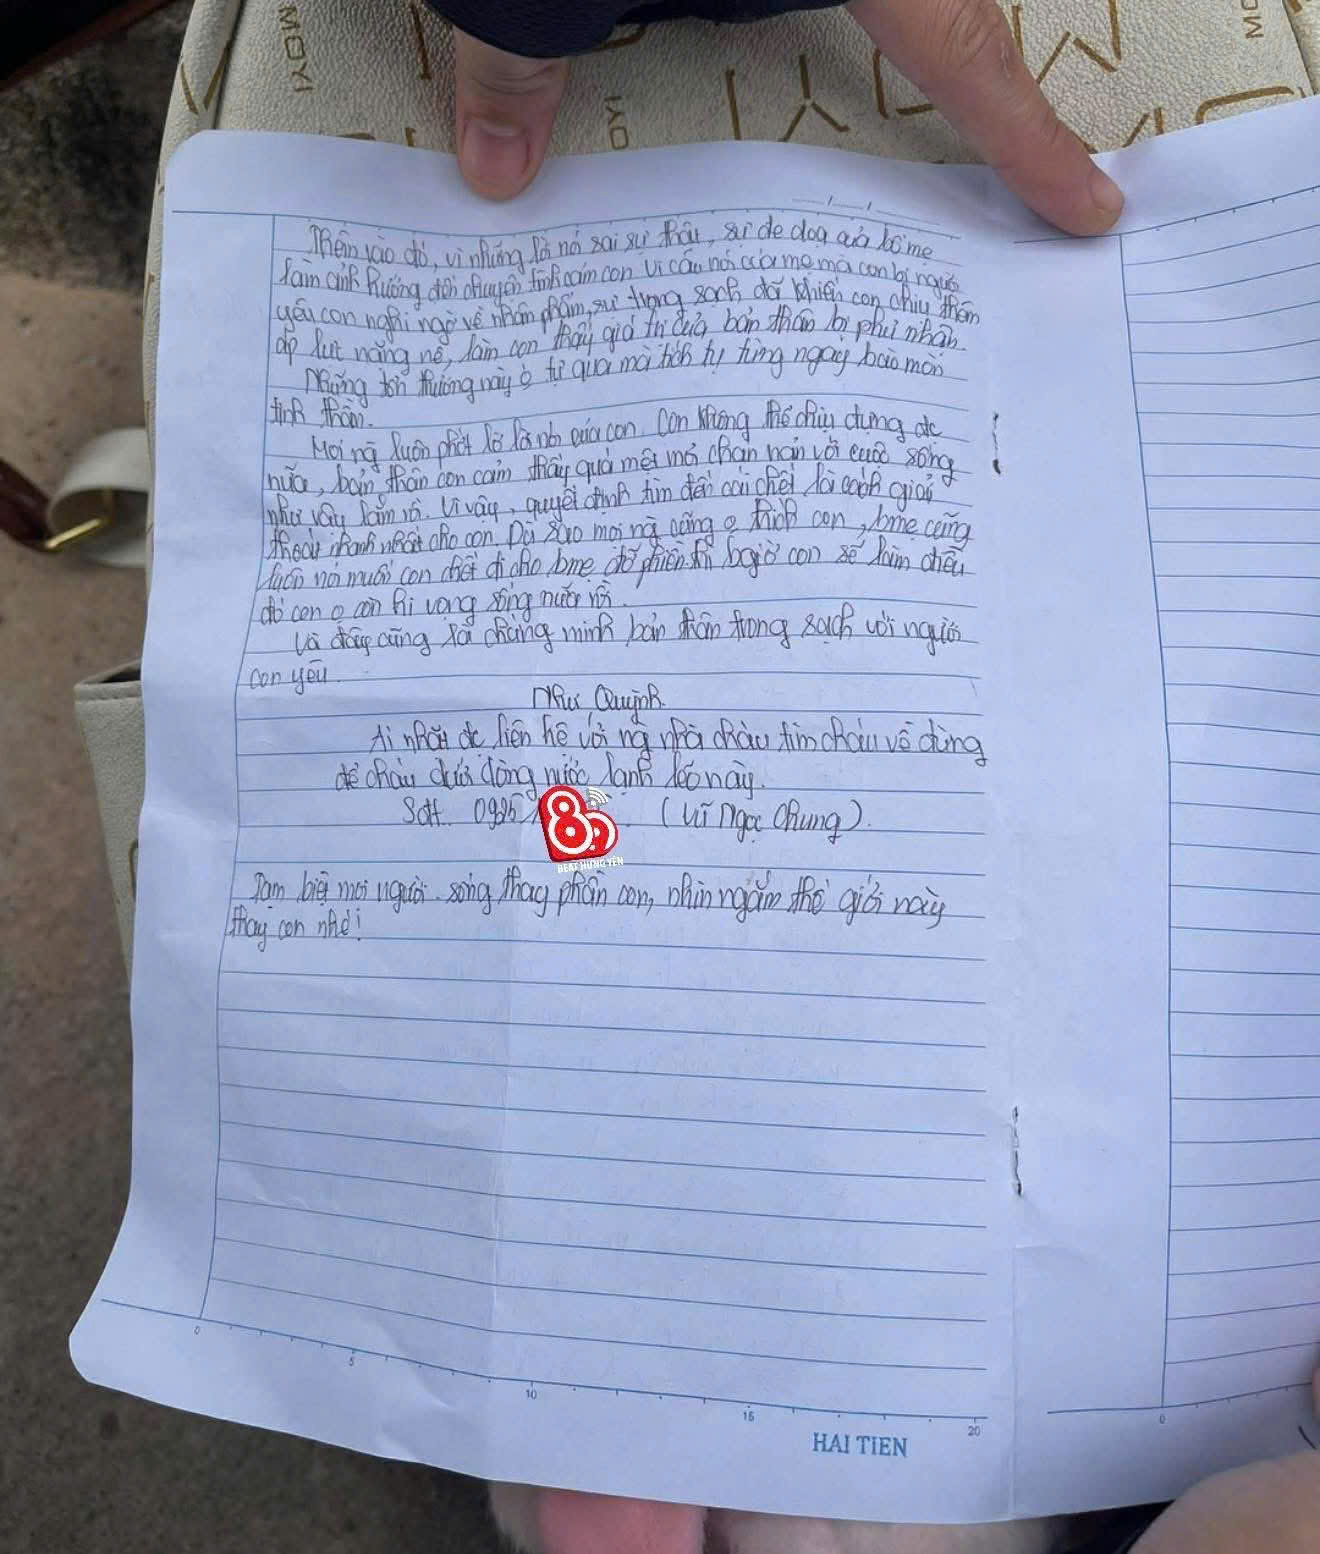 MOYI
MO
MO
Thêm vào đó, vì những lời nói sai sự thật, sự đe doạ của bố mẹ
làm ảnh hưởng đến chuyện tình cảm con. Vì câu nói của mẹ mà con bị người
yêu con nghi ngờ về nhân phẩm, sự trong sạch đã khiến con chịu thêm
áp lực nặng nề, làm con thấy giá trị của bản thân bị phủ nhận.
Những tổn thương này o tự qua mà tích tụ từng ngày bào mòn
tinh thần.
Mọi ng luôn phớt lờ lời nói của con. Con không thể chịu đựng đc
nữa, bản thân con cảm thấy quá mệt mỏi chán nản với cuộc sống
như vậy lắm rồi. Vì vậy, quyết định tìm đến cái chết là cách giải
thoát nhanh nhất cho con. Dù sao mọi ng cũng o thích con, bme cũng
luôn nói muốn con chết đi cho bme đỡ phiền thì bgiờ con sẽ làm điều
đó con o còn hi vọng sống nữa rồi.
Và đây cũng là chứng minh bản thân trong sạch với người
con yêu.
Như Quỳnh.
Ai nhặt đc liên hệ với ng nhà cháu tìm cháu về đừng
để cháu dưới dòng nước lạnh lẽo này.
Sđt. (Vũ Ngọc Chung).
BEAT HƯNG YÊN
Tạm biệt mọi người. sống thay phần con, nhìn ngắm thế giới này
thay con nhé!
0 5 10 15 20
HAI TIEN
0